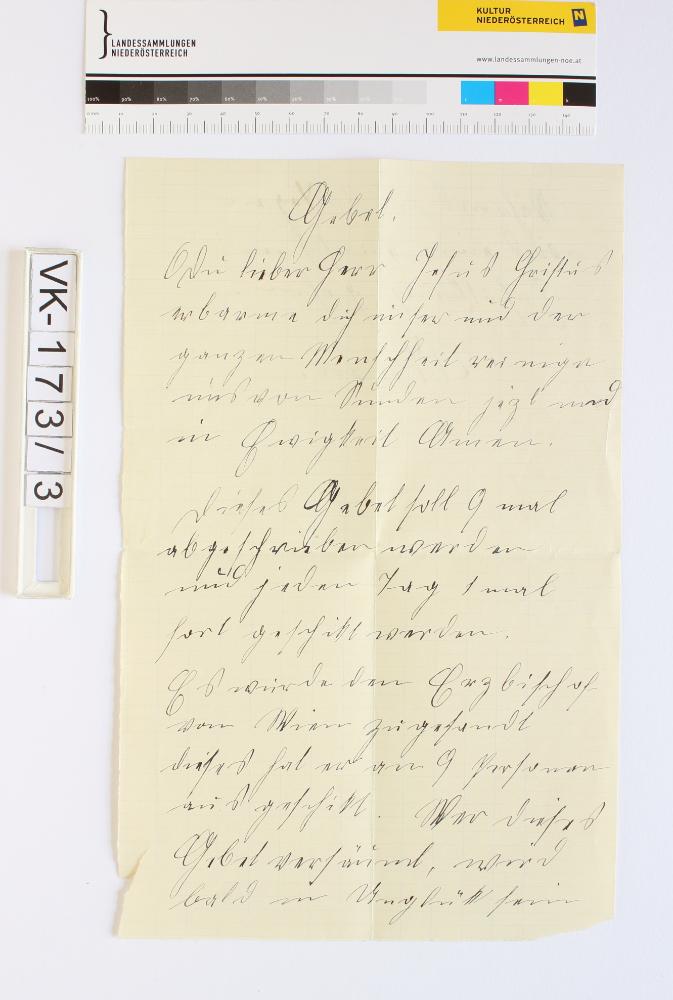 LANDESSAMMLUNGEN
NIEDERÖSTERREICH
KULTUR
NIEDERÖSTERREICH
www.landessammlungen-noe.at
VK-173/3
Gebet.
O Du lieber Herr Jesus Christus
erbarme dich unser und der
ganzen Menschheit reinige
uns von Sünden jezt und
in Ewigkeit Amen.
Dieses Gebet soll 9 mal
abgeschrieben werden
und jeden Tag 1 mal
fort geschikt werden.
Es wurde den Erzbischof
von Wien zugesandt
dieses hat er an 9 Personen
aus geschikt. Wer dieses
Gebet versäumt, wird
bald in Unglük sein